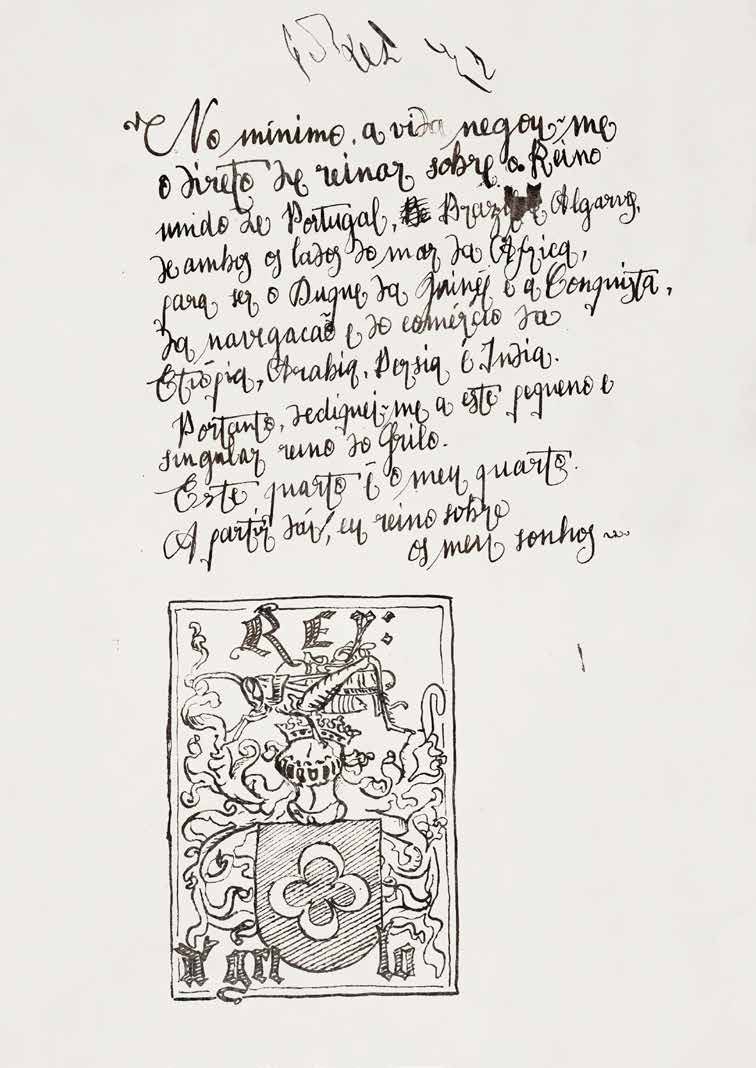 No mínimo, a vida negou-me
o direto de reinar sobre o Reino
unido de Portugal, Bráz e Algarve,
de ambos os lados do mar da África,
para ser o Duque da Guinéi e a Conquista,
da navegacaõ e do comércio da
Etiópia, Arabia, Persia é India.
Portanto, dediquei-me a este pequeno e
singular reino do Grilo.
Este quarto é o meu quarto.
A partir dái, eu reino sobre
os meu sonhos
REY:
d' gri lo